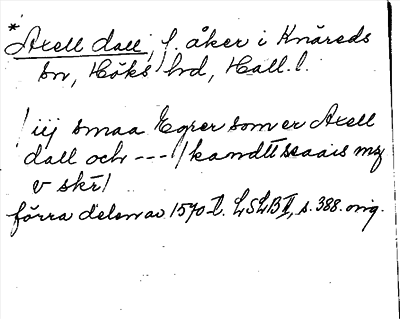 *Axell dall, f. åker i Knäreds
sn, Höks hd, Hall. l.
/ iij smaa Egrer som er Axell
dall och --- // kandtt seaais mz
v skr/
förra delen av 1570-t. LSLB II, s. 388. orig.